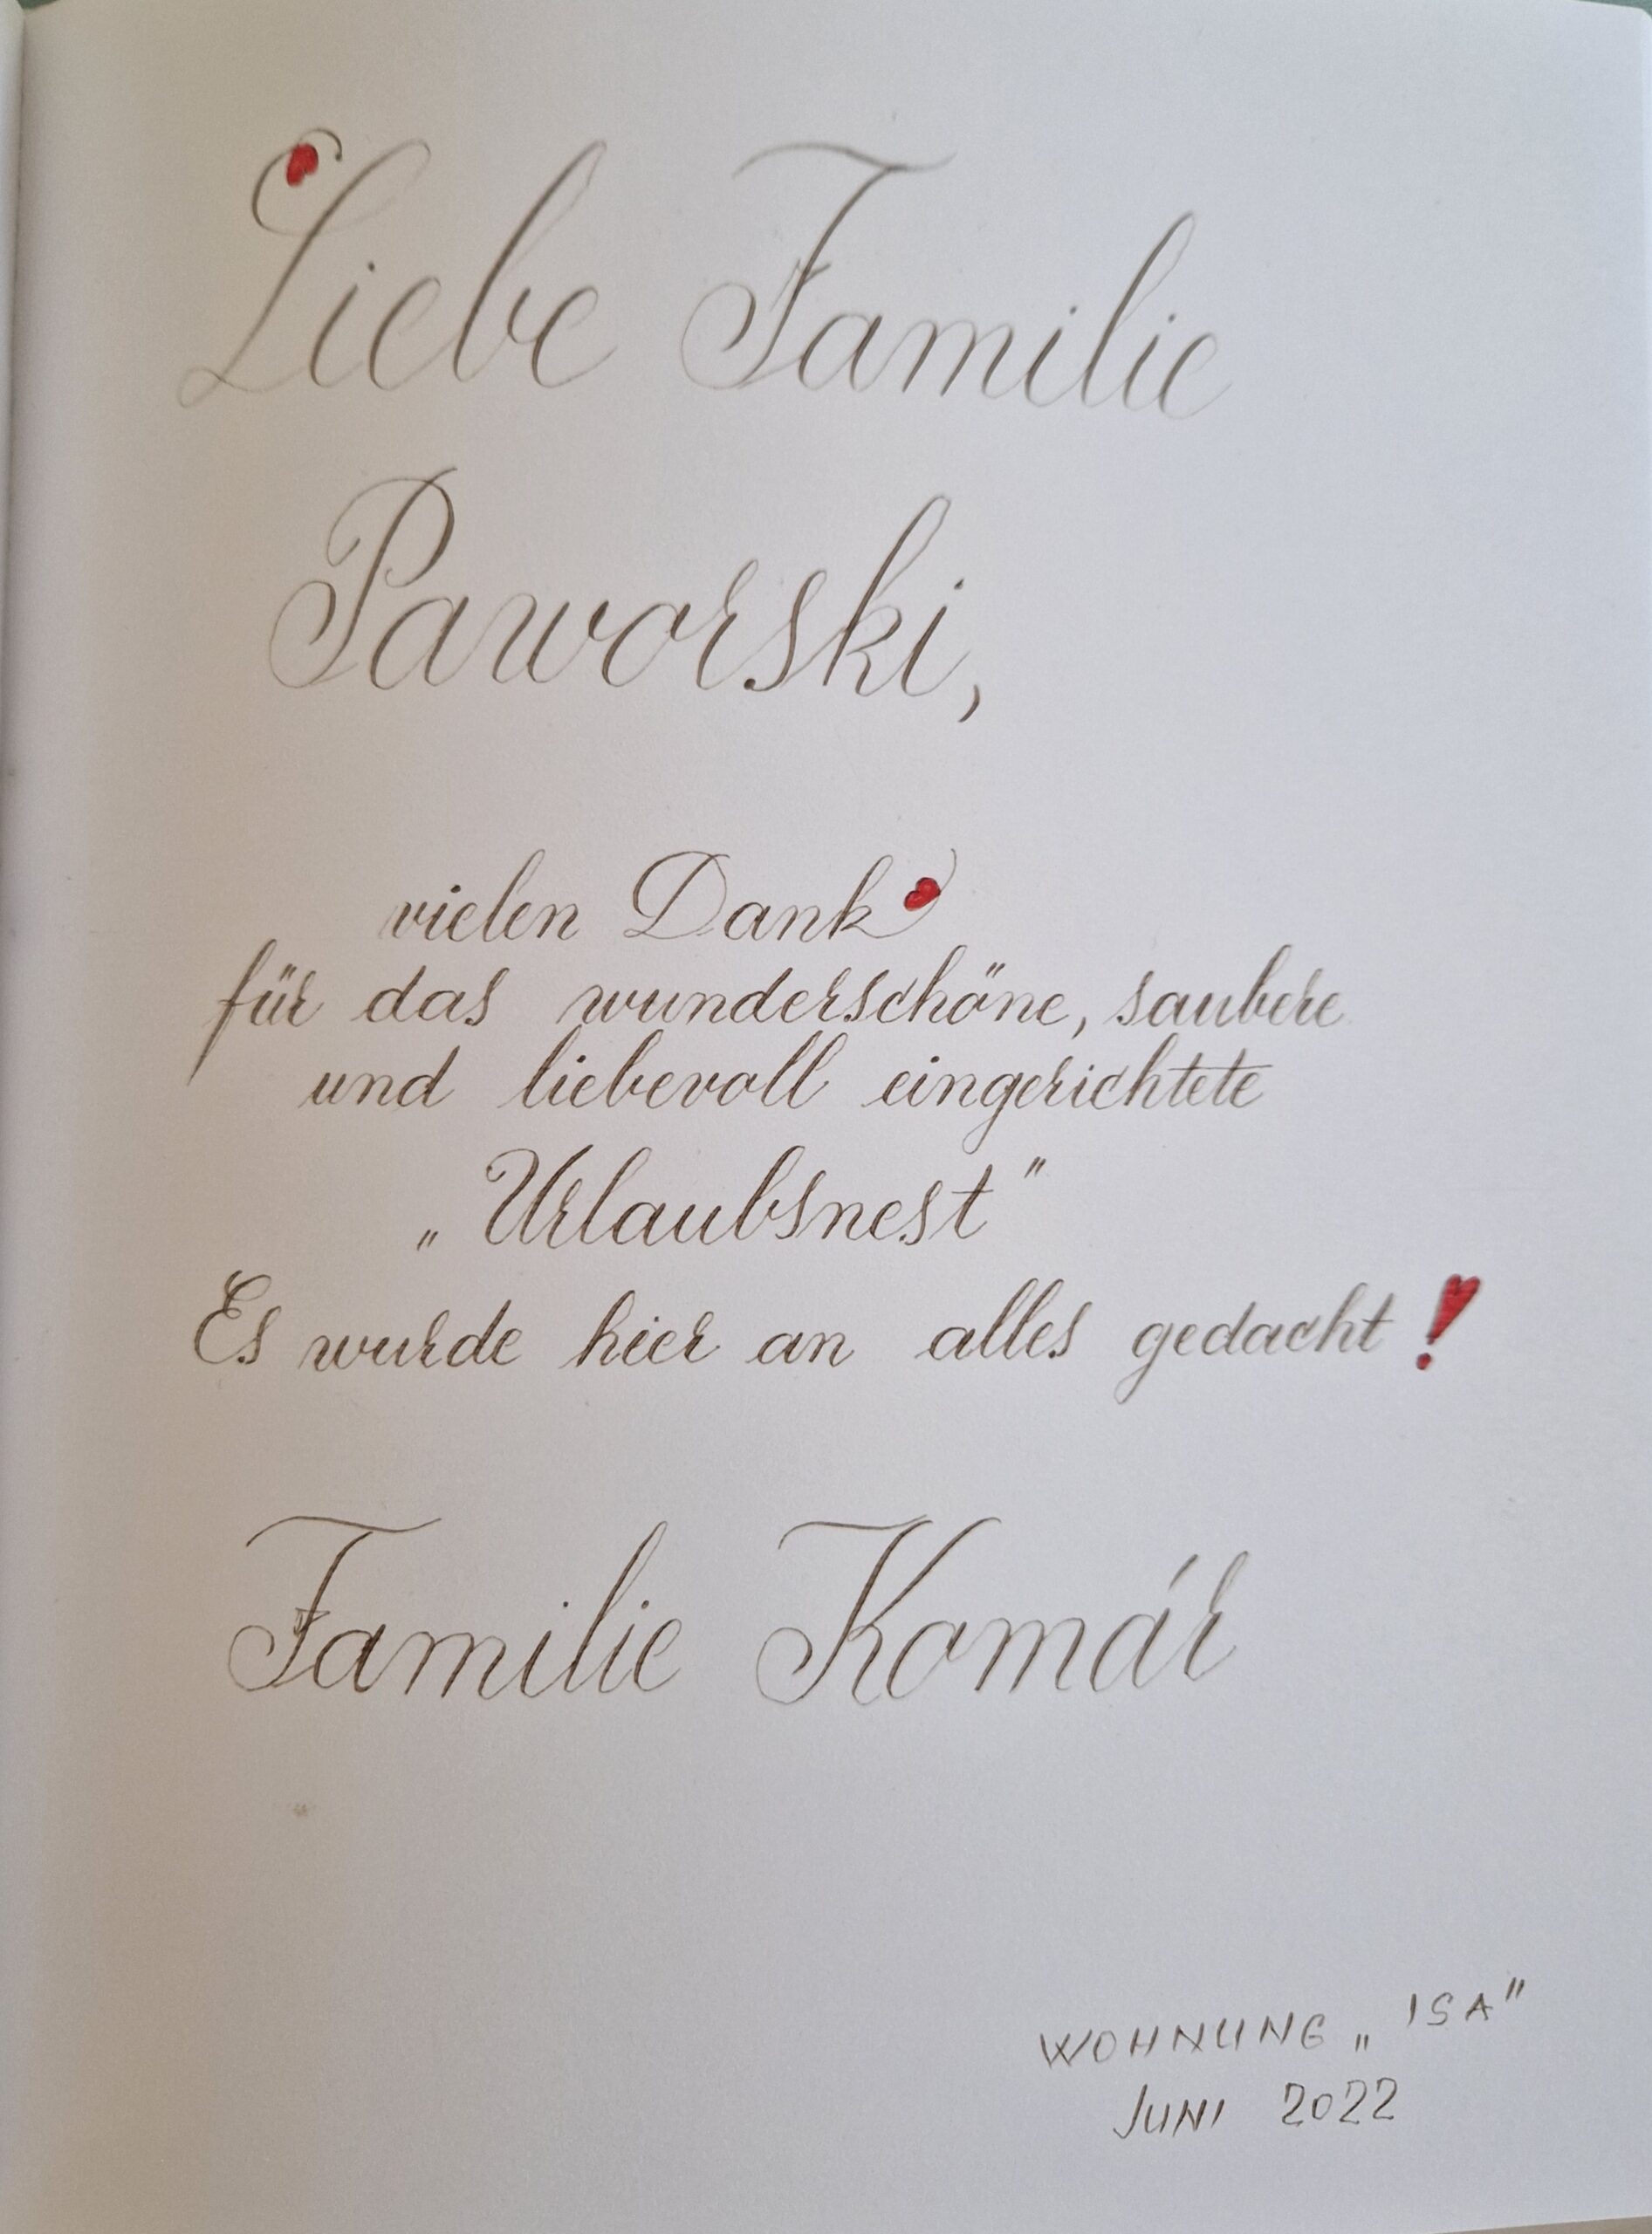 Liebe Familie
Paworski,
vielen Dank
für das wunderschöne, saubere
und liebevoll eingerichtete
„Urlaubsnest"
Es wurde hier an alles gedacht!
Familie Komár
WOHNUNG „ISA"
JUNI 2022